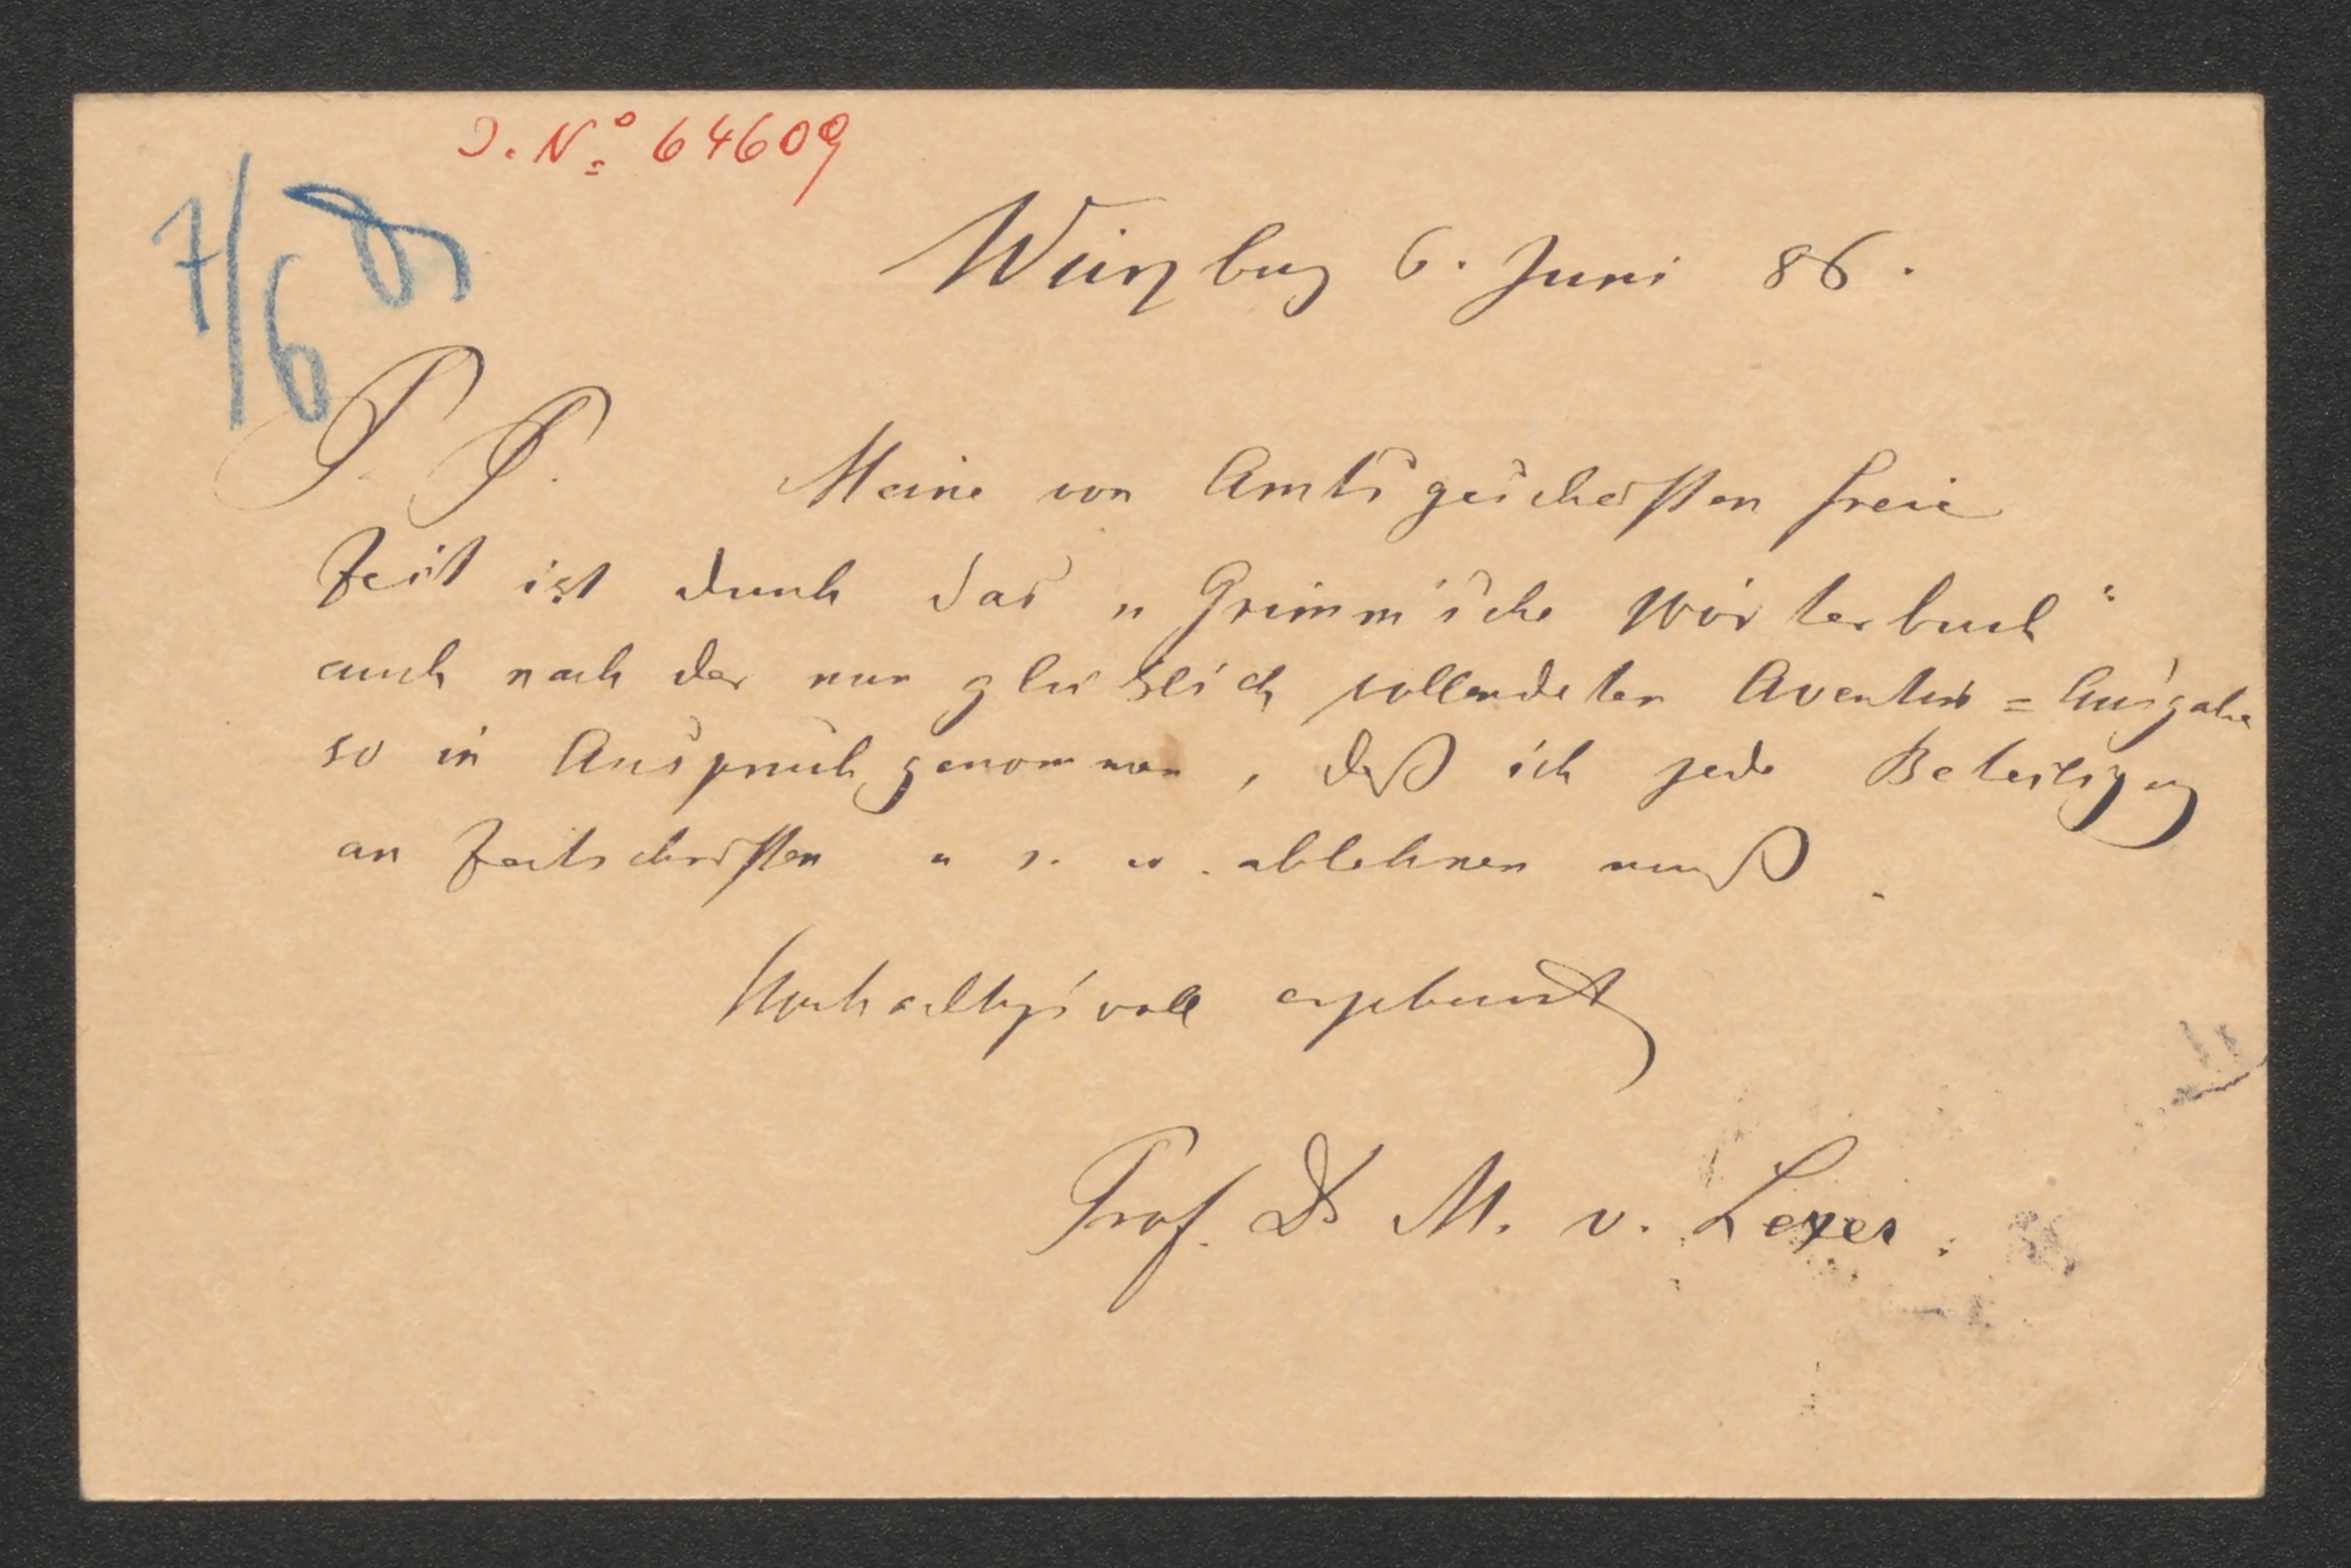 J. No. 64609
7/6
Würzburg 6. Juni 86.
P. P. Meine von Amtsgeschäften freie
Zeit ist durch das „Grimm'sche Wörterbuch"
auch nach der nun glücklich vollendeten Aventin=Ausgabe
so in Anspruch genommen, daß ich jede Beteiligung
an Zeitschriften u. s. w. ablehnen muß.
Hochachtungsvoll ergebenst
Prof. Dr M. v. Lexer.